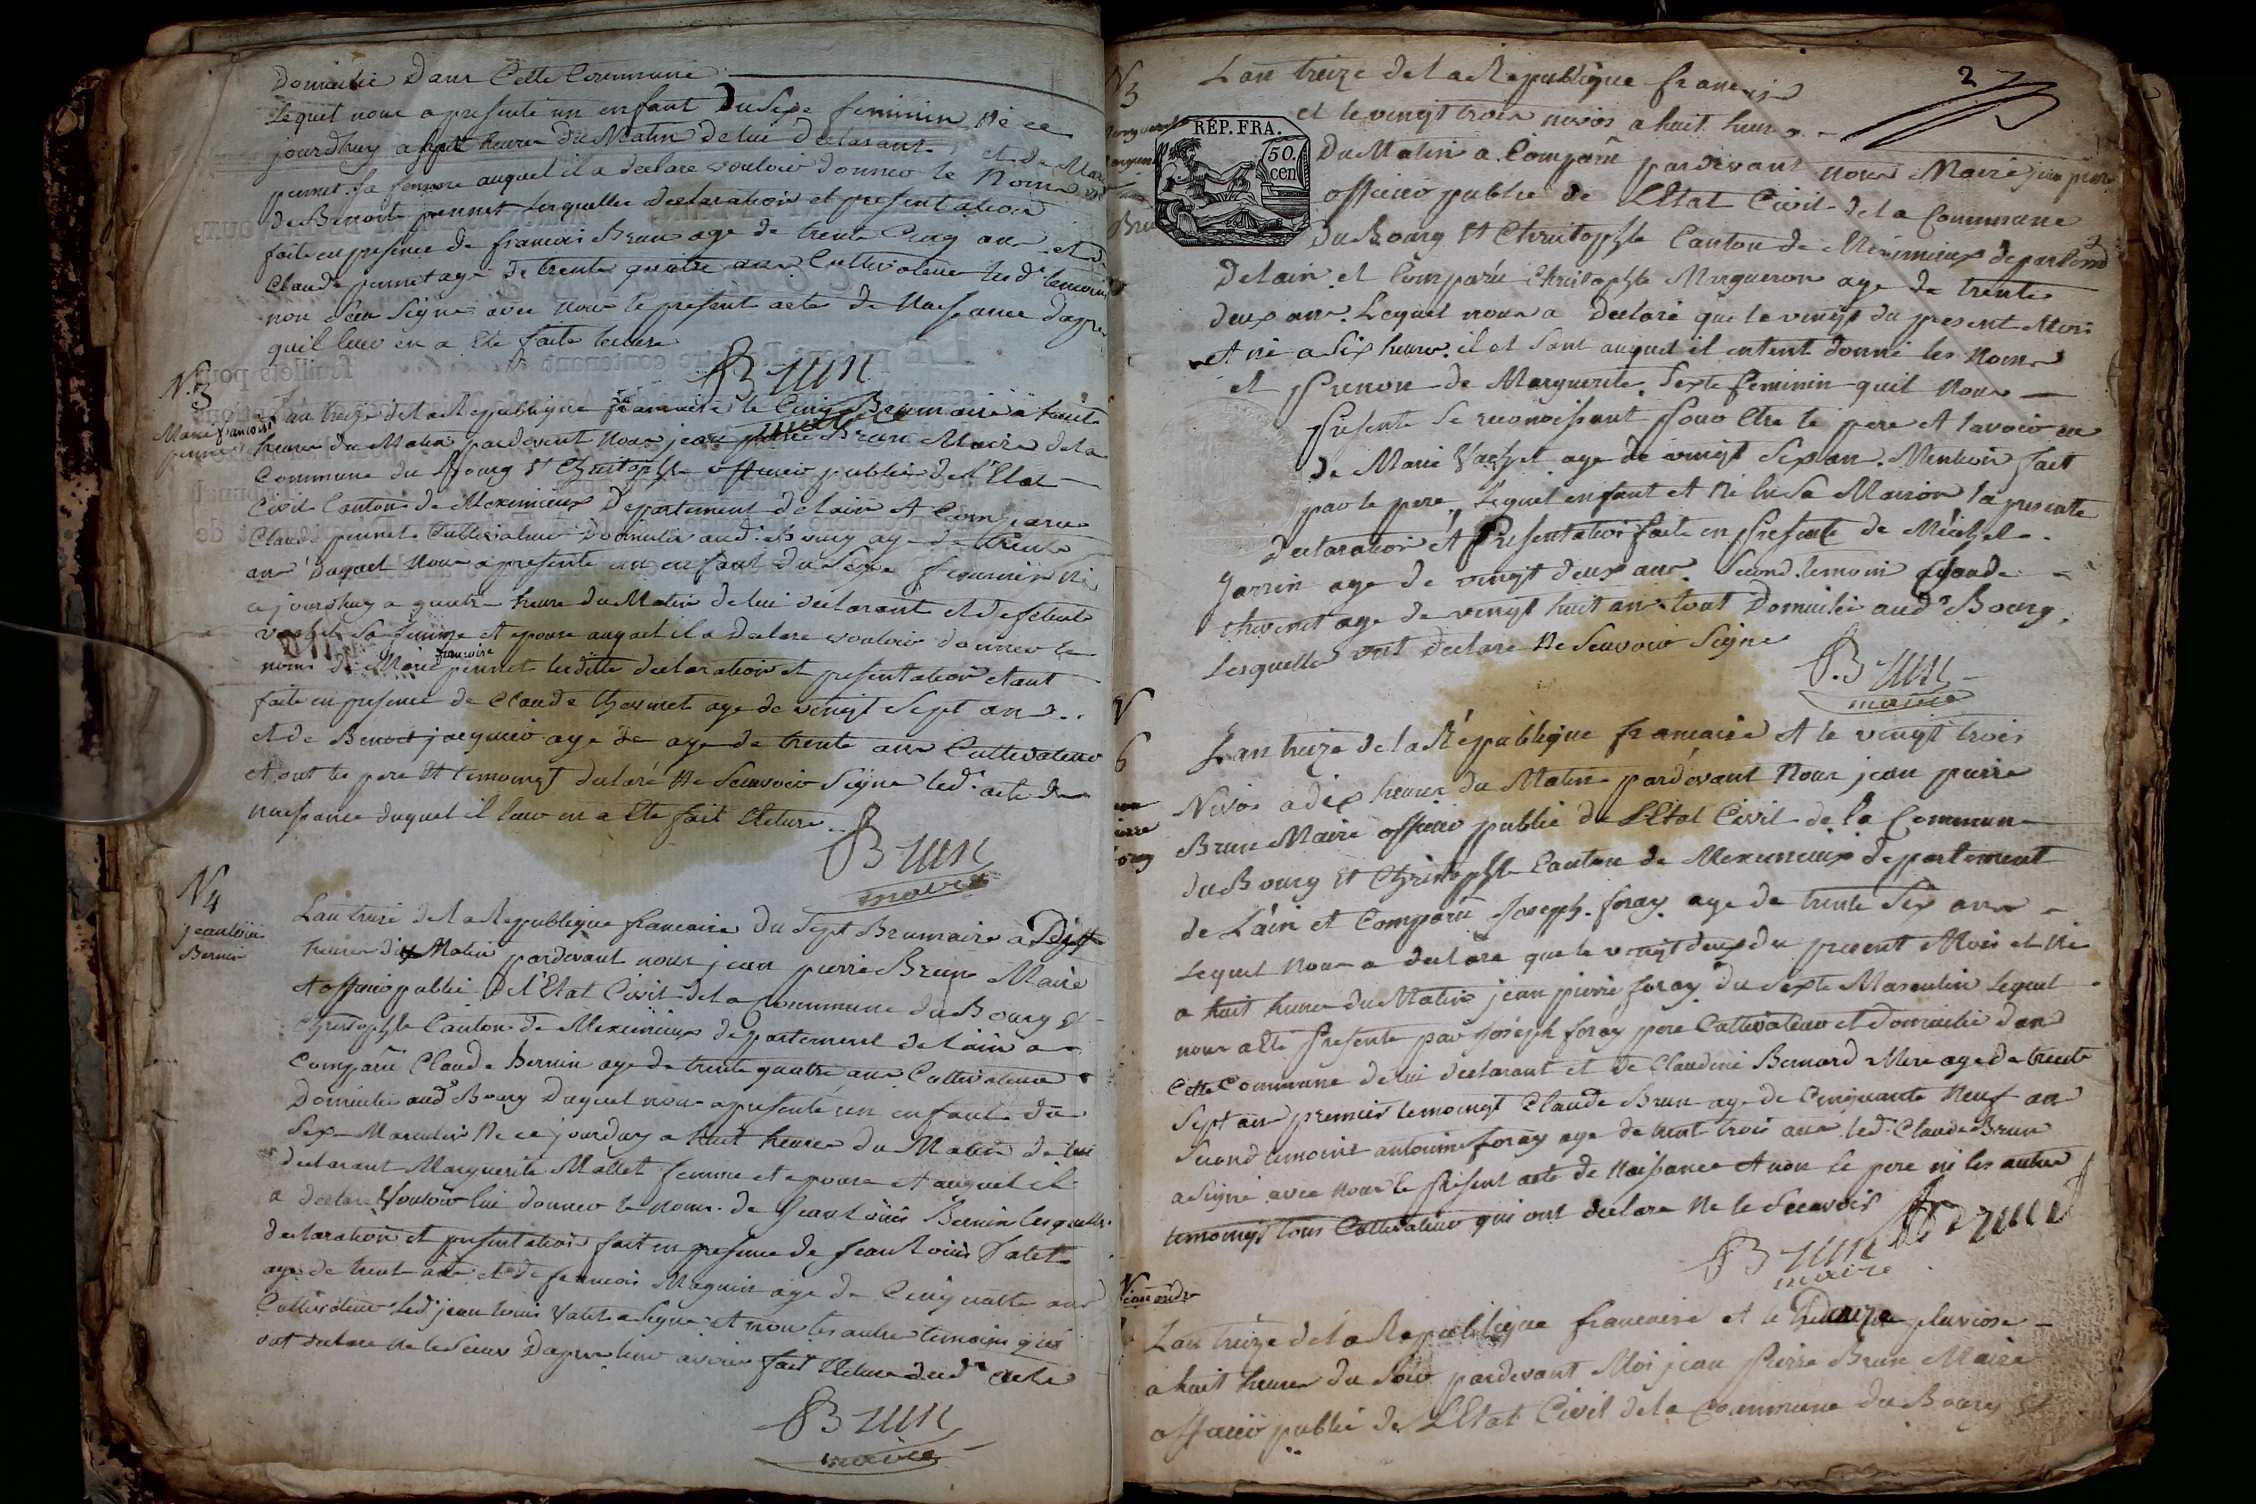 Domicilié Dans Cette Commune
Lequel nous a presenté un enfant Du Sexe feminin Né ce
jourdhuy a sept heures Du Matin De lui Declarant et de Marie
pernet Sa femme auquel il a declare vouloir donner le Nom
de Benoite pernet Lesquelles declaration et presentation
faite en presence de francois Brun age de trente Cinq ans et de
Claude pernet age de trente quatre ans Cultivateur temoins
non Sceu Signe avec nous le present acte de Naissance dapres
quil leur en a Ete faite lecture
Brun
maire
N 3
Marie francoise
pernet
Lan treize de La Republique francaise le Cinq Brumaire a huit
heures du Matin pardevent Nous jean pierre Brun Maire de la
Commune du Bourg St Christophle officier public de l'Etat
Civil Canton de Meximieux Departement de lain Et Comparu
Claude pernet Cultivateur Domicilie aud. Bourg age de trente
ans Duquel Nous a presente un enfant du Sexe feminin Né
ce jourdhuy a quatre heure du Matin de lui declarant et de
vachet Sa femme et epouse auquel il a Declare vouloir donner le
francoise
nom de Marie pernet lesditte declaration et presentation etant
faite en presence de Claude thevenet age de vingt Sept ans
et de Benoit jacquier age de age de trente ans Cultivateur
et ont les pere Et temoingt declaré Ne Scauvoir Signe led. acte de
naissance duquel il leur en a Ete fait Lecture
Brun
maire
N 4
jean louis
Bernin
Lan treze de La Republique francaise du Sept Brumaire a Dix
heures du Matin pardevant nous jean pierre Brun Maire
et officier public De l'Etat Civil de la Commune du Bourg St
Christophle Canton de Meximieux departement de lain a
Comparu Claude Bernin age de trente quatre ans Cultivateur
Domicilie aud Bourg Duquel nous a presente un enfant du
Sexe Masculin Ne ce jourduy a huit heures du Matin de lui
declarant Marguerite Mallet femme et epouse et auquel il
a declare Vouloir lui donner le nom de Jean Louis Bernin lesquelles
declaration et presentation fait en presence de Jean Louis Valet
age de trente ans et de francois Magnin age de Cinquante ans
Cultivateur led. jean louis Valet a Signe et non les autre temoins qui
ont declare Ne le Sceu Dapres leur avoir fait Lecture dud. acte
Brun
maire
2
N 3
RÉP. FRA.
50. cen
Lan treize de La Republique francaise
et le vingt trois nivos a huit heures
Du Matin a Comparu pardevant nous Maire jean pierre
officier public de L'Etat Civil de la Commune
Du Bourg St Christophle Canton de Meximieux departement
De lain et Comparu Christophle Margueron age de trente
deux ans Lequel nous a Declaré que le vingt du present Mois
et né a Six heures il et Sont auquel il entent donné les Noms
et Prenon de Marguerite Sexte feminin quil Nous
Presente Se reconoissant Pour Etre le pere Et lavoir eu
de Marie Vachet age de vingt Six an Mention fait
par le pere Lequel enfant et Né In Sa Maison la presente
declaration Et Presentation faite en Presente de Michel
Jarrin age de vingt deux ans Second temoin Claude
thevenet age de vingt huit an tout Domicilié aud. Bourg
Lesquelles ont declare Ne Scauvoir Signe
Brun
maire
Lan treize de La République francaise et le vingt trois
Nivos a dix heures du Matin pardevant Nous jean pierre
Brun Maire officier public de L'Etat Civil de la Commune
du Bourg St Christophle Canton de Meximieux departement
de L'ain et Comparu Joseph foray age de trente Six ans
Lequel Nous a declare que le vingt deux du present Mois et Né
a huit heures du Matin jean pierre foray du Sexte Masculin Lequel
nous a Ete Presente par Joseph foray pere Cultivateur et domicilie dan
Cette Commune de lui declarant et de Claudine Bernard Mere age de trente
Sept ans premier temoingt Claude Brun age de Cinquante Neuf an
Second temoins antoine foray age de trent trois ans led Claude Brun
a Signe avec nous le Présent acte de Naissance et non le pere ni les autre
temoingt tous Cultivateur qui ont declare Ne le Scauvoir
Brun
Brun
maire
Lan treize de La Republique francaise et le Douze pluviose
a huit heures du Soir pardevant Moi jean Pierre Brun Maire
officier public de L'Etat Civil de la Commune du Bourg St